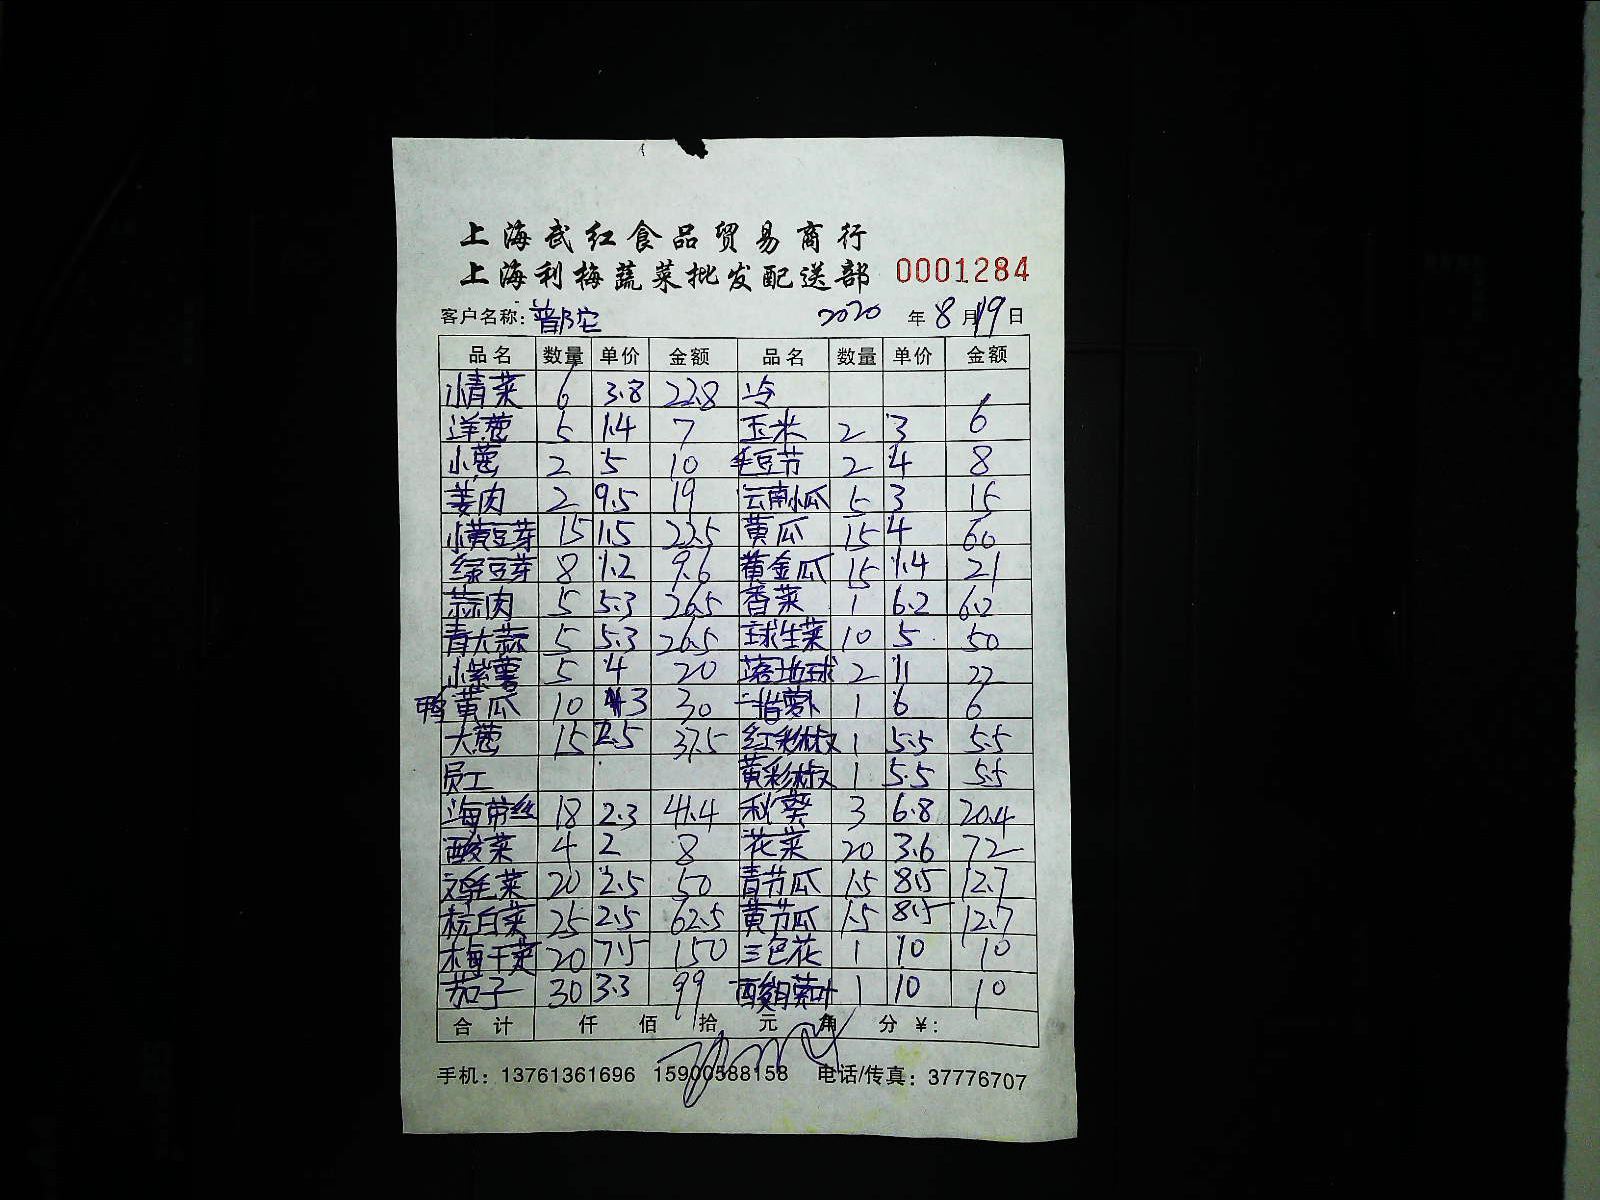 上海武红食品贸易商行
上海利梅蔬菜批发配送部 0001284
客户名称: 普陀 2020 年 8 月 19 日
品名 数量 单价 金额 品名 数量 单价 金额
小青菜 6 3.8 22.8 冷
洋葱 5 1.4 7 玉米 2 3 6
小葱 2 5 10 毛豆节 2 4 8
姜肉 2 9.5 19 云南小瓜 5 3 15
小黄豆芽 15 1.5 22.5 黄瓜 15 4 60
绿豆芽 8 1.2 9.6 黄金瓜 15 1.4 21
蒜肉 5 5.3 26.5 香菜 1 6.2 6.2
青大蒜 5 5.3 26.5 球生菜 10 5 50
小紫薯 5 4 20 落地球 2 11 22
鸭黄瓜 10 3 30 一指萝卜 1 6 6
大葱 15 2.5 37.5 红彩椒 1 5.5 5.5
员工 黄彩椒 1 5.5 5.5
海带丝 18 2.3 41.4 秋葵 3 6.8 20.4
酸菜 4 2 8 花菜 20 3.6 72
鸡毛菜 20 2.5 50 青节瓜 1.5 8.5 12.7
杭白菜 25 2.5 62.5 黄节瓜 1.5 8.5 12.7
梅干菜 20 7.5 150 三色花 1 10 10
茄子 30 3.3 99 酸模叶 1 10 10
合计 仟 佰 拾 元 角 分 ¥:
手机: 13761361696 15900588158 电话/传真: 37776707